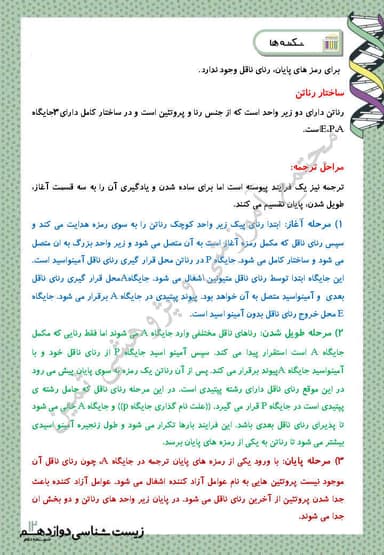 نکته ها
برای رمز های پایان، رنای ناقل وجود ندارد.
ساختار رناتن
رناتن دارای دو زیر واحد است که از جنس رنا و پروتئین است و در ساختار کامل دارای۳جایگاه
E،P،Aاست.
مراحل ترجمه:
ترجمه نیز یک فرایند پیوسته است اما برای ساده شدن و یادگیری آن را به سه قسمت آغاز،
طویل شدن، پایان تقسیم می کنند.
۱) مرحله آغاز: ابتدا رنای پیک زیر واحد کوچک رناتن را به سوی رمزه هدایت می کند و
سپس رنای ناقل که مکمل رمزه آغاز است به آن متصل می شود و زیر واحد بزرگ به ان متصل
می شود و ساختار کامل می شود. جایگاه P در رناتن محل قرار گیری رنای ناقل آمینواسید است.
این جایگاه ابتدا توسط رنای ناقل متیونین اشغال می شود. جایگاهAمحل قرار گیری رنای ناقل
بعدی و آمینواسید متصل به آن خواهد بود. پیوند پپتیدی در جایگاه A برقرار می شود. جایگاه
E محل خروج رنای ناقل بدون آمینو اسید است.
۲) مرحله طویل شدن: رناهای ناقل مختلفی وارد جایگاه A می شوند اما فقط رنایی که مکمل
جایگاه A است استقرار پیدا می کند. سپس آمینو اسید جایگاه P از رنای ناقل خود و با
آمینواسید جایگاه Aپیوند برقرار می کند. پس از آن رناتن یک رمزه به سوی پایان پیش می رود
در این موقع رنای ناقل دارای رشته پپتیدی است. در این مرحله رنای ناقل که حامل رشته ی
پپتیدی است در جایگاه P قرار می گیرد. ((علت نام گذاری جایگاه p)) و جایگاه A خالی می شود
تا پذیرای رنای ناقل بعدی باشد. این فرایند بارها تکرار می شود و طول زنجیره آمینو اسیدی
بیشتر می شود تا رناتن به یکی از رمزه های پایان برسد.
۳) مرحله پایان: با ورود یکی از رمزه های پایان ترجمه در جایگاه A، چون رنای ناقل آن
موجود نیست پروتئین هایی به نام عوامل آزاد کننده اشغال می شود. عوامل آزاد کننده باعث
جدا شدن پروتئین از آخرین رنای ناقل می شود. در پایان زیر واحد های رناتن و دو بخش ان
جدا می شوند.
زیست شناسی دوازدهم
۱۲